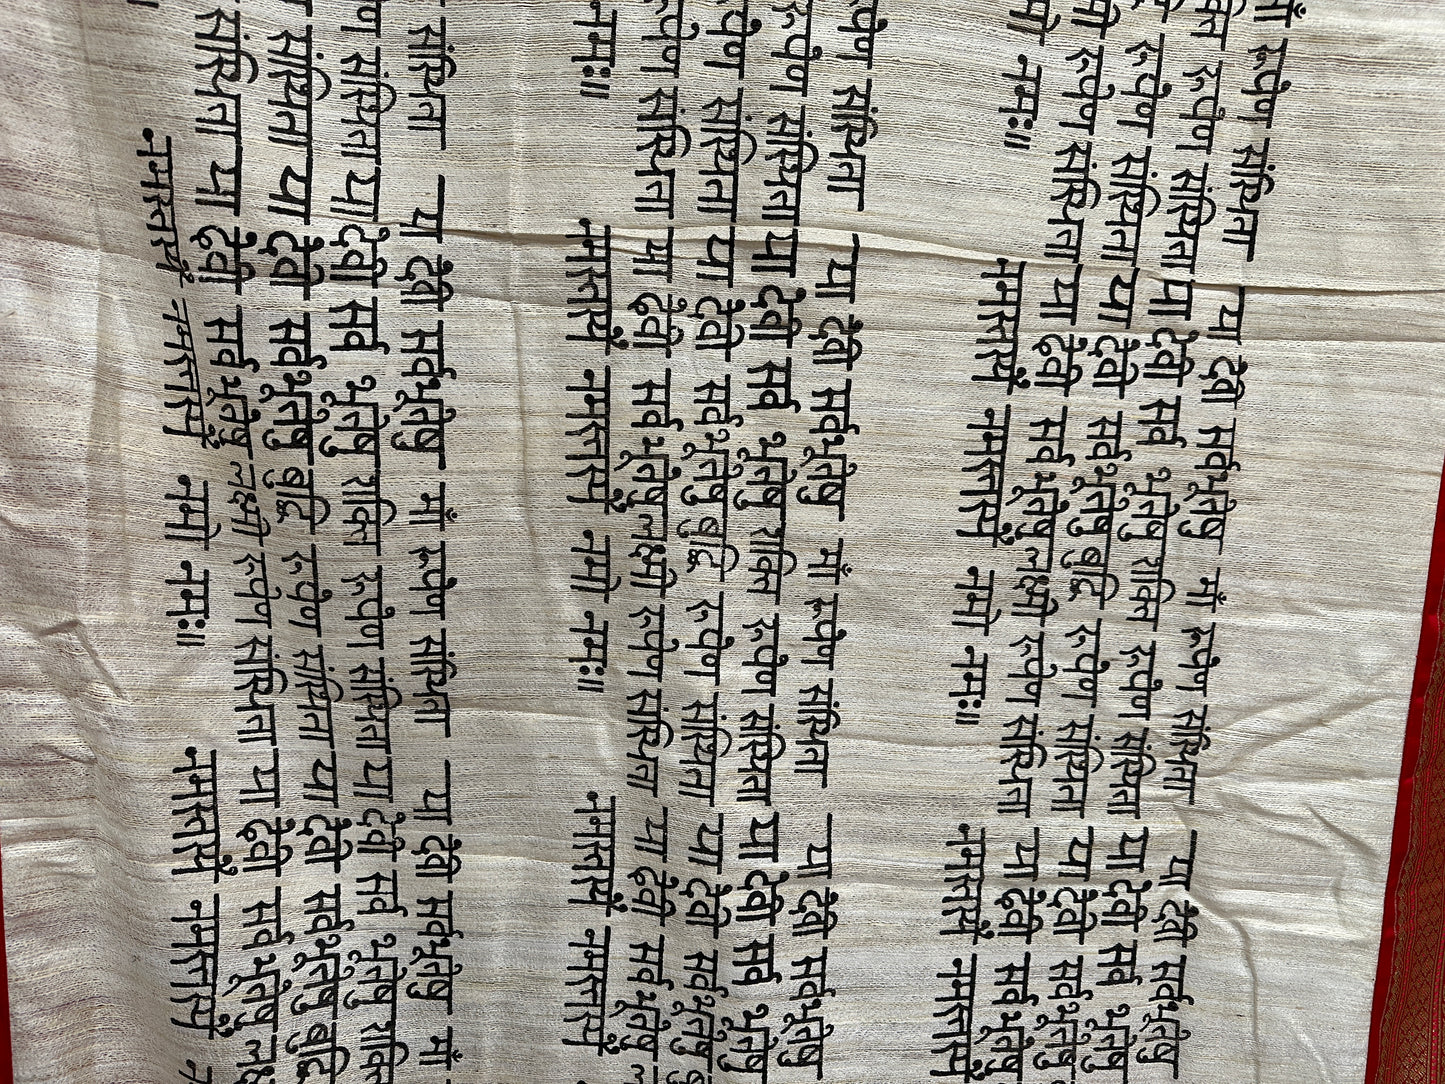 माँ रूपेण संस्थिता या देवी सर्वभूतेषु माँ रूपेण संस्थिता या देवी सर्वभूतेषु
रूपेण संस्थिता या देवी सर्व भूतेषु शक्ति रूपेण संस्थिता या देवी सर्व भूतेषु
रूपेण संस्थिता या देवी सर्वभूतेषु बुद्धि रूपेण संस्थिता या देवी सर्वभूतेषु
रूपेण संस्थिता या देवी सर्वभूतेषु लक्ष्मी रूपेण संस्थिता या देवी सर्वभूतेषु
नमः॥ नमस्तस्यै नमस्तस्यै नमो नमः॥ नमस्तस्यै नमस्तस्यै
रूपेण संस्थिता या देवी सर्वभूतेषु माँ रूपेण संस्थिता या देवी सर्वभूतेषु
रूपेण संस्थिता या देवी सर्व भूतेषु शक्ति रूपेण संस्थिता या देवी सर्व भूतेषु
रूपेण संस्थिता या देवी सर्वभूतेषु बुद्धि रूपेण संस्थिता या देवी सर्वभूतेषु
रूपेण संस्थिता या देवी सर्वभूतेषु लक्ष्मी रूपेण संस्थिता या देवी सर्वभूतेषु
नमः॥ नमस्तस्यै नमस्तस्यै नमो नमः॥ नमस्तस्यै नमस्तस्यै
संस्थिता या देवी सर्वभूतेषु माँ रूपेण संस्थिता या देवी सर्वभूतेषु माँ
संस्थिता या देवी सर्व भूतेषु शक्ति रूपेण संस्थिता या देवी सर्व भूतेषु शक्ति
संस्थिता या देवी सर्वभूतेषु बुद्धि रूपेण संस्थिता या देवी सर्वभूतेषु बुद्धि
संस्थिता या देवी सर्वभूतेषु लक्ष्मी रूपेण संस्थिता या देवी सर्वभूतेषु
नमस्तस्यै नमस्तस्यै नमो नमः॥ नमस्तस्यै नमस्तस्यै